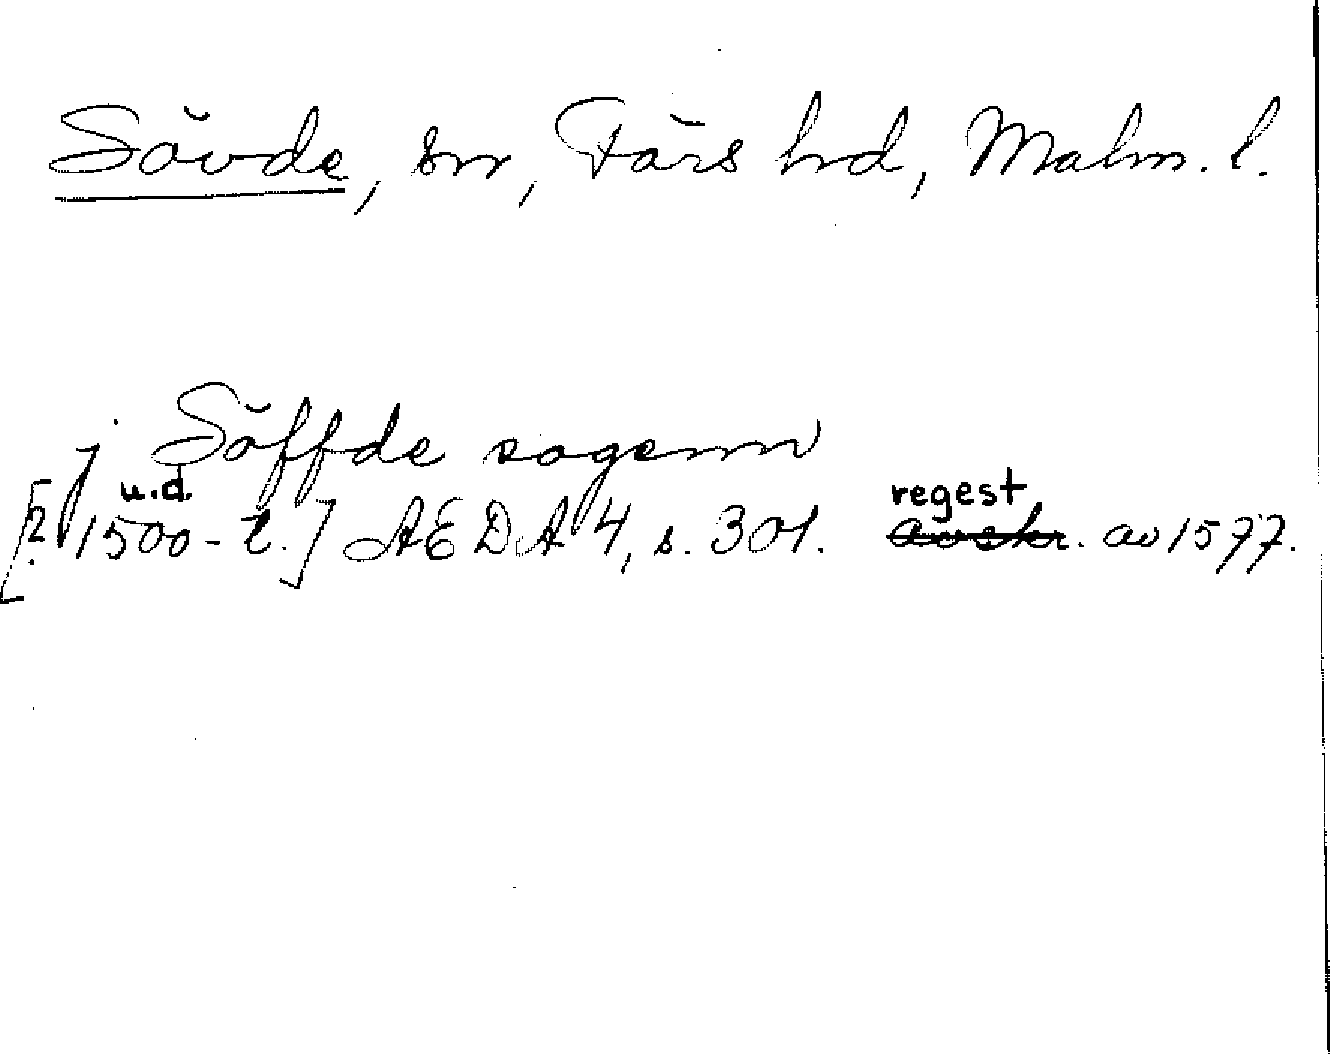 Sövde, sn, Färs hd, Malm. l.
j Söffde sogenn
u.d. regest
[? 1500-t.] AEDA 4, s. 301. avskr. av 1577.